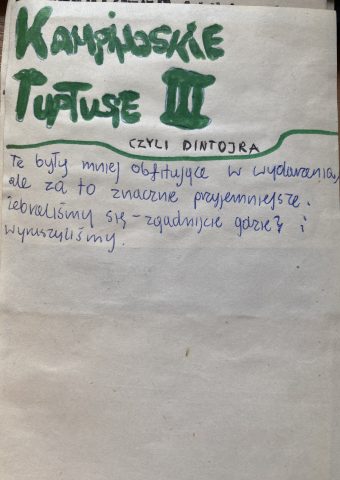 KAMPINOSKIE
TUPTUSIE III
CZYLI DINTOJRA
Te były mniej obfitujące w wydarzenia,
ale za to znacznie przyjemniejsze.
Zebraliśmy się - zgadnijcie gdzie? i
wyruszyliśmy.